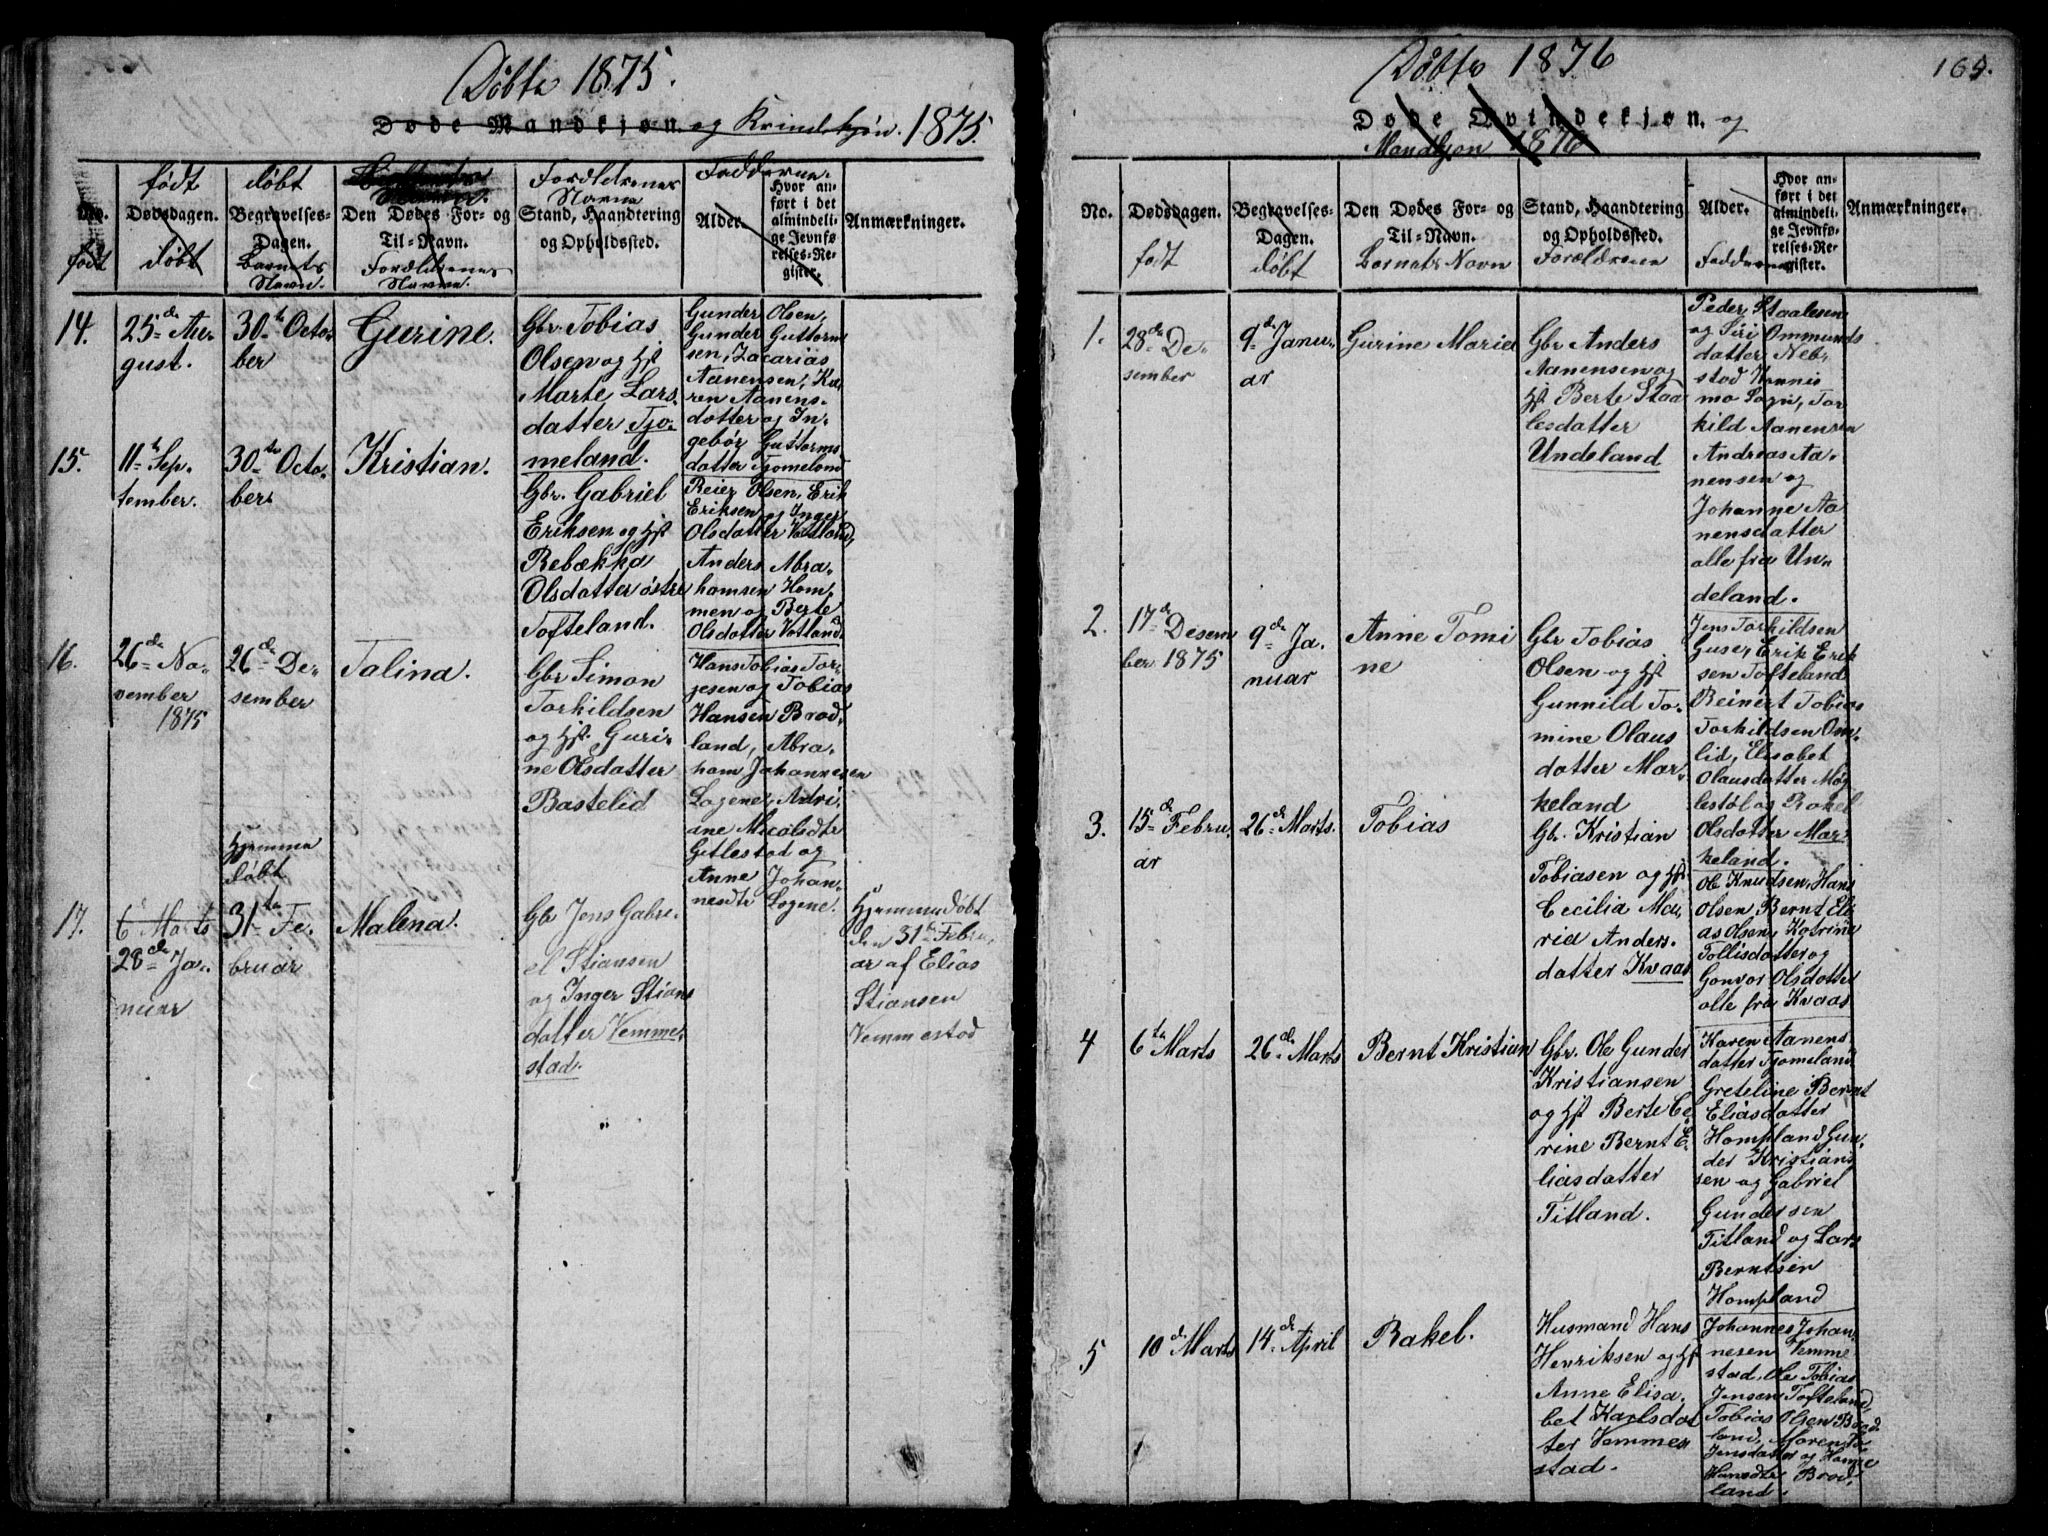 Døbte 1875.
Døde Mandkjøn. og Kvindekjøn. 1875.
født
døbt
Forældrenes
Navne
Fadderne.
No.
Dødsdagen.
Begravelses-
Dagen.
Den Dødes For- og
Til-Navn.
Stand, Haandtering
og Opholdssted.
Alder.
Hvor an-
ført i det
almindeli-
ge Jevnfø
relses-Re-
gister.
Anmærkninger.
født
døbt
Barnets
Navn.
Forældrenes
Navne.
14.
25de Au-
gust.
30te Octo-
ber
Gurine.
Gbr. Tobias
Olsen og Hst
Marte Lars-
datter Tjo-
meland.
Gunder Olsen,
Gunder Guttorm
sen, Zacarias
Aanensen, Ka-
ren Aanens-
datter og In-
gebør Guttorms
datter Tjomeland
15.
11te Sep-
tember.
30te Octo-
ber
Kristian.
Gbr. Gabriel
Eriksen og Hst
Rebækka
Olsdatter østre
Tofteland.
Reier Olsen, Erik
Eriksen og Inger
Olsdatter Votland,
Anders Abra-
hamsen Hom-
men og Berte
Olsdatter Votland
16.
26de No-
vember
1875
26de De-
sember
Talina.
Gbr. Simon
Torkildsen
og Hst. Guri-
ne Olsdatter
Bastelid
Hans Tobias Tor-
jesen og Tobias
Hansen Brod-
land, Abra-
ham Johannesen
Logene, Adri-
ane Nicolsdtr
Gitlestad og
Anne Johan-
nesdtr Logene.
17.
6 Marts
28de Ja-
nuar
Hjemme
døbt
31te Fe-
bruar
Malena.
Gbr Jens Gabri-
el Stiansen
og Inger Stians
datter Vemme-
stad.
Hjemmedøbt
den 31te Febru-
ar af Elias
Stiansen
Vemmestad
Døbte 1876
165.
Døde Qvindekjøn. og
Mandkjøn 1876
No.
Dødsdagen.
født
Begravelses-
Dagen.
døbt
Den Dødes For- og
Til-Navn.
Barnets Navn
Stand, Haandtering
og Opholdssted.
Forældrene
Alder.
Fadderne
Hvor an-
ført i det
almindeli-
ge Jevnfø-
relses-Re-
gister.
Anmærkninger.
1.
28de De-
sember
9de Janu-
ar
Gurine Marie
Gbr Anders
Aanensen og
Hst Berte Staa
lesdatter
Undeland
Peder Staalesen
og Siri Ommunds
datter Neb-
stad Kvinnis
mo Sogn, Tor
kild Aanensen
Andreas Aa-
nensen og
Johanne Aa-
nensdatter
alle fra Un-
deland.
2.
17de Desem
ber 1875
9de Ja-
nuar
Anne Tomi
ne
Gbr Tobias
Olsen og Hst
Gunnild To-
mine Olaus
datter Mar-
keland
Jens Torkildsen
Guse, Erik Erik
sen Tofteland
Reinert Tobias
Torkildsen Om-
lid, Elisabet
Olausdatter Møg
lestøl og Rakel
Olsdatter Mar-
keland.
3.
15de Febru-
ar
26de Marts.
Tobias
Gbr. Kristian
Tobiasen og Hst
Cecilia Ma-
ria Anders-
datter Kvaas
Ole Knudsen, Hans
Olsen, Bernt Eli
as Olsen, Katrine
Tollisdatter og
Gonvor Olsdatter
alle fra Kvaas.
4
6te Marts
26de Marts
Bernt Kristian
Gbr. Ole Gunder
Kristiansen
og Hst Berte Ce-
rine Bernt E-
liasdatter
Titland.
Karen Aanens
datter Tjomeland
Greteline Bernt
Eliasdatter
Hompland Gun-
der Kristians
sen og Gabriel
Gundersen
Titland og Lars
Berntsen
Hompland
5
10de Marts
14de April
Rakel.
Husmand Hans
Henriksen og Hst
Anne Elisa-
bet Karlsdat
ter Vemme-
stad.
Johannes Johan-
nesen Vemme
stad, Ole Tobias
Jensen Tofteland,
Tobias Olsen Brod
land, Maren
Jensdatter og Hanne
Hansdtr Brod-
land.